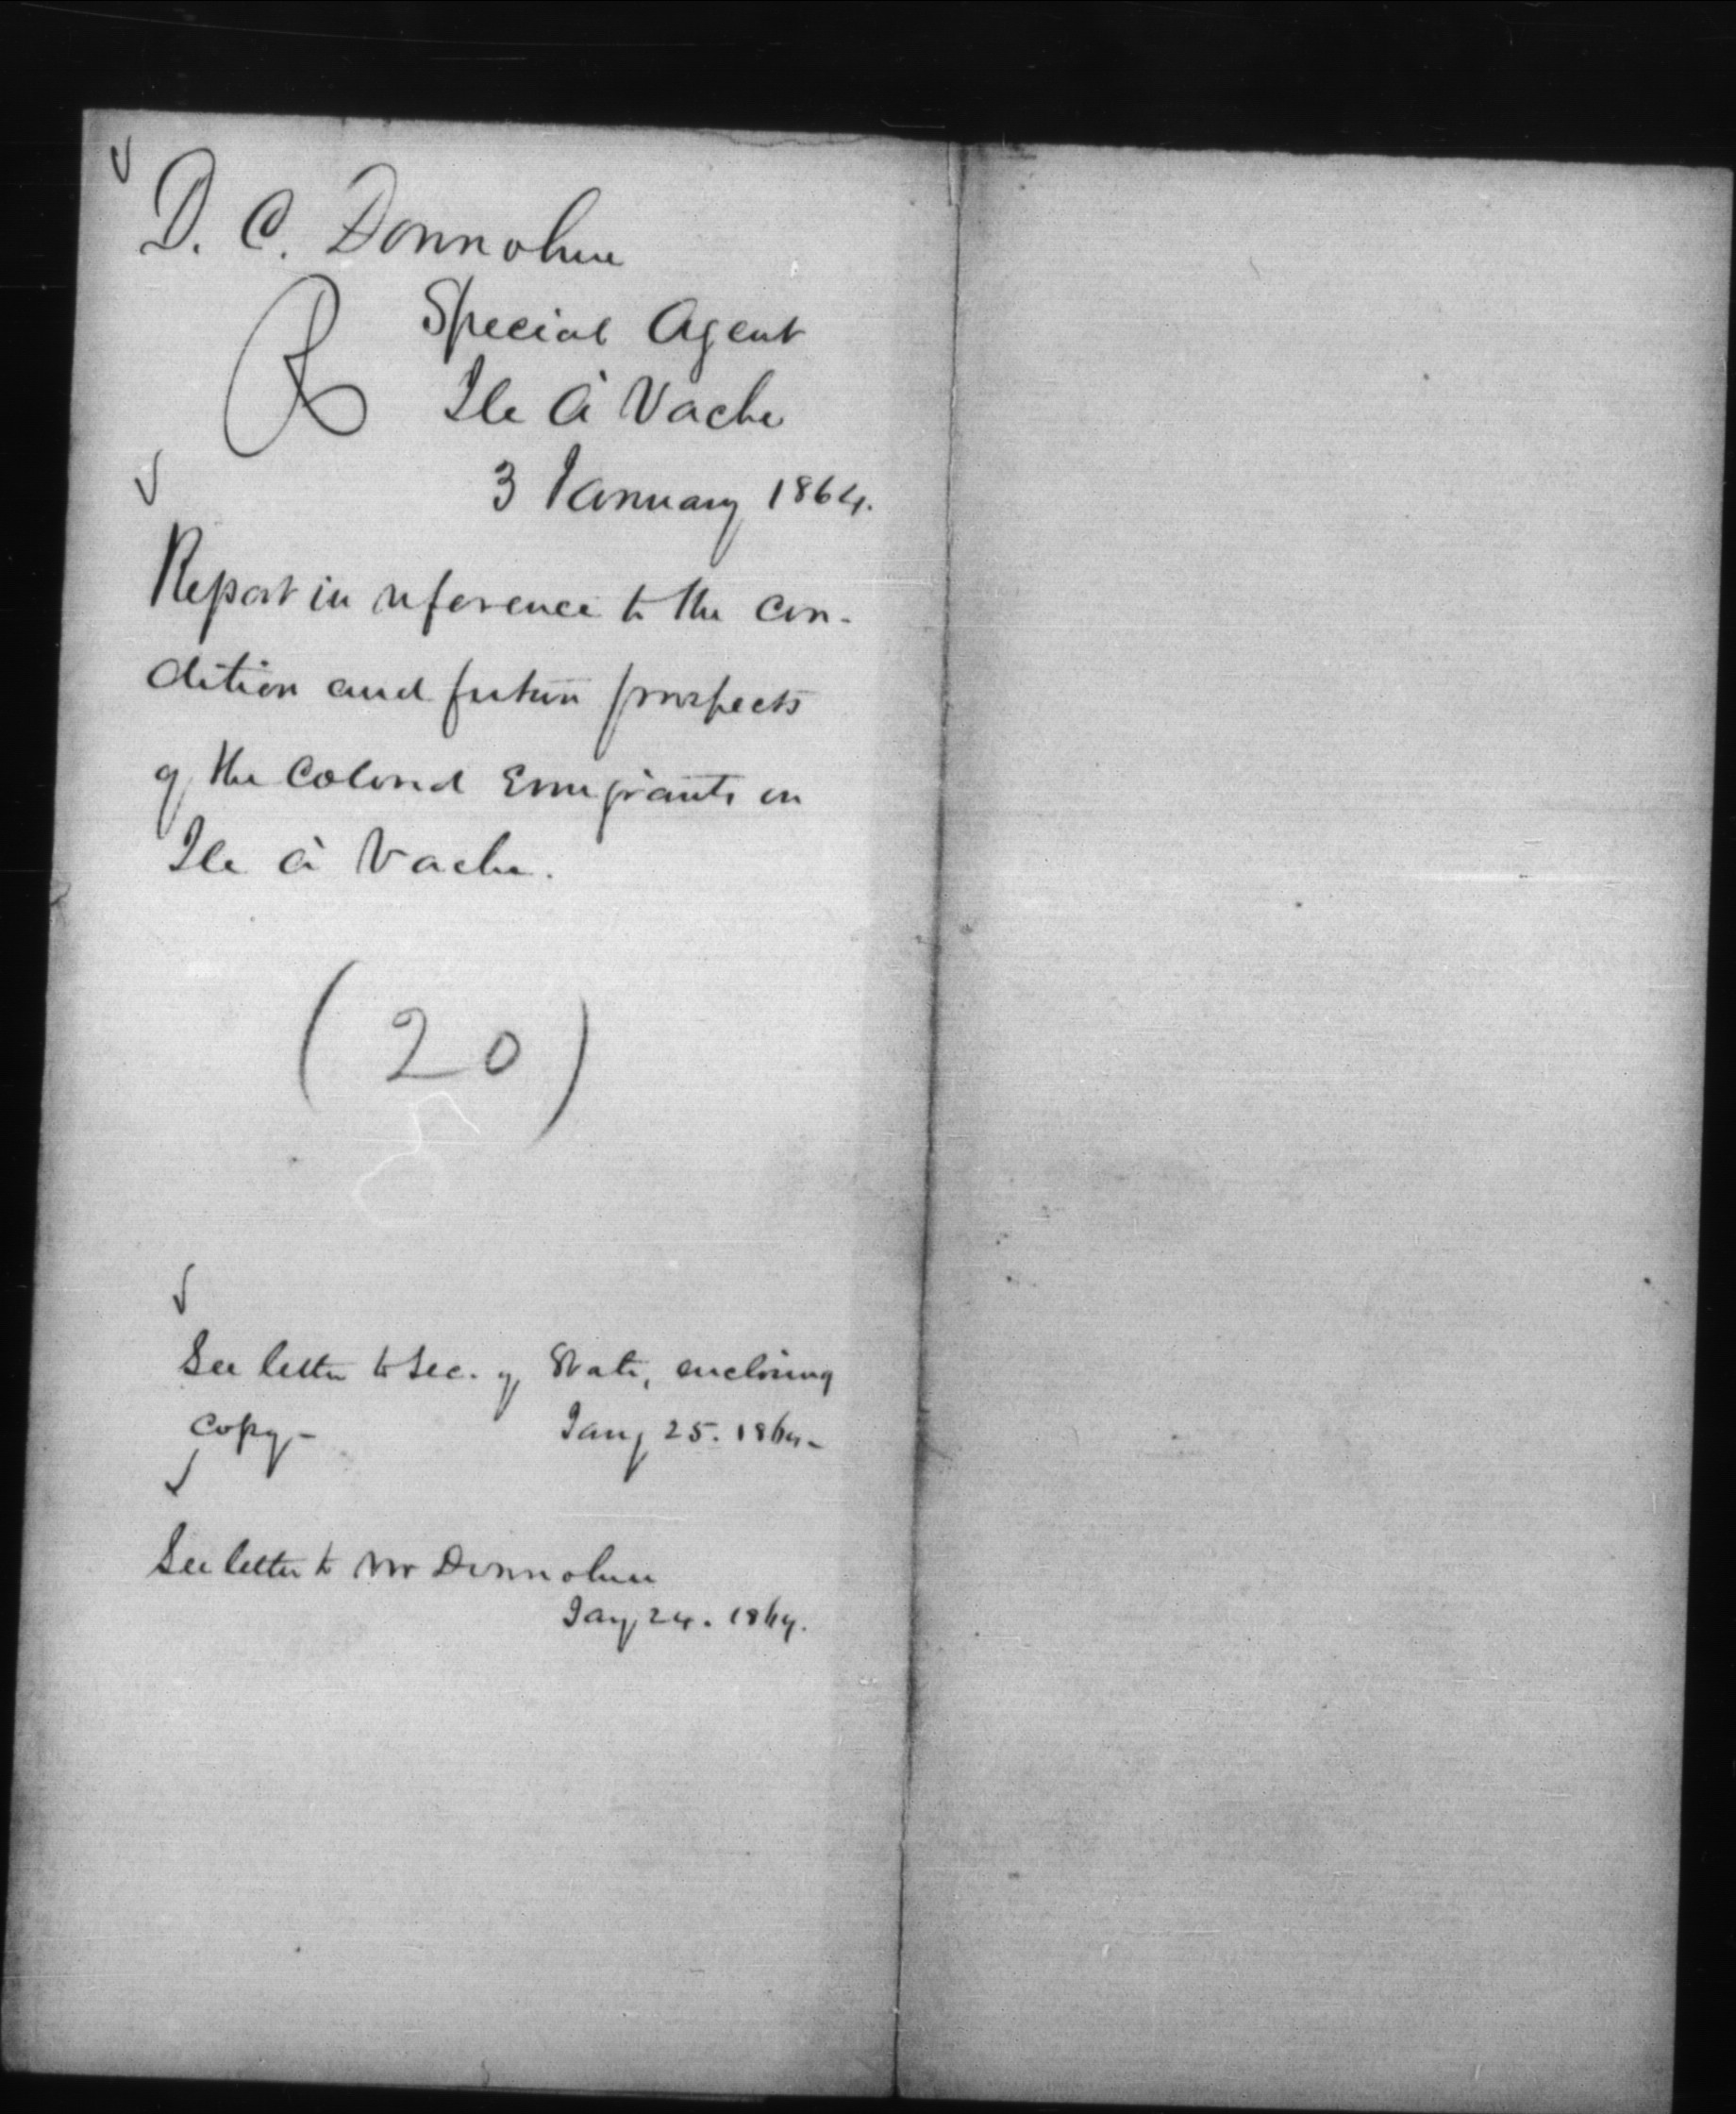 D. C. Donnohue
R
Special Agent
Ile à Vache
3 January 1864.
Report in reference to the con-
dition and future prospects
of the Colored Emigrants on
Ile à Vache.
(20)
See letter to Sec. of State, enclosing
copy - Jany 25. 1864 -
See letter to Mr Donnohue
Jany 24. 1864.